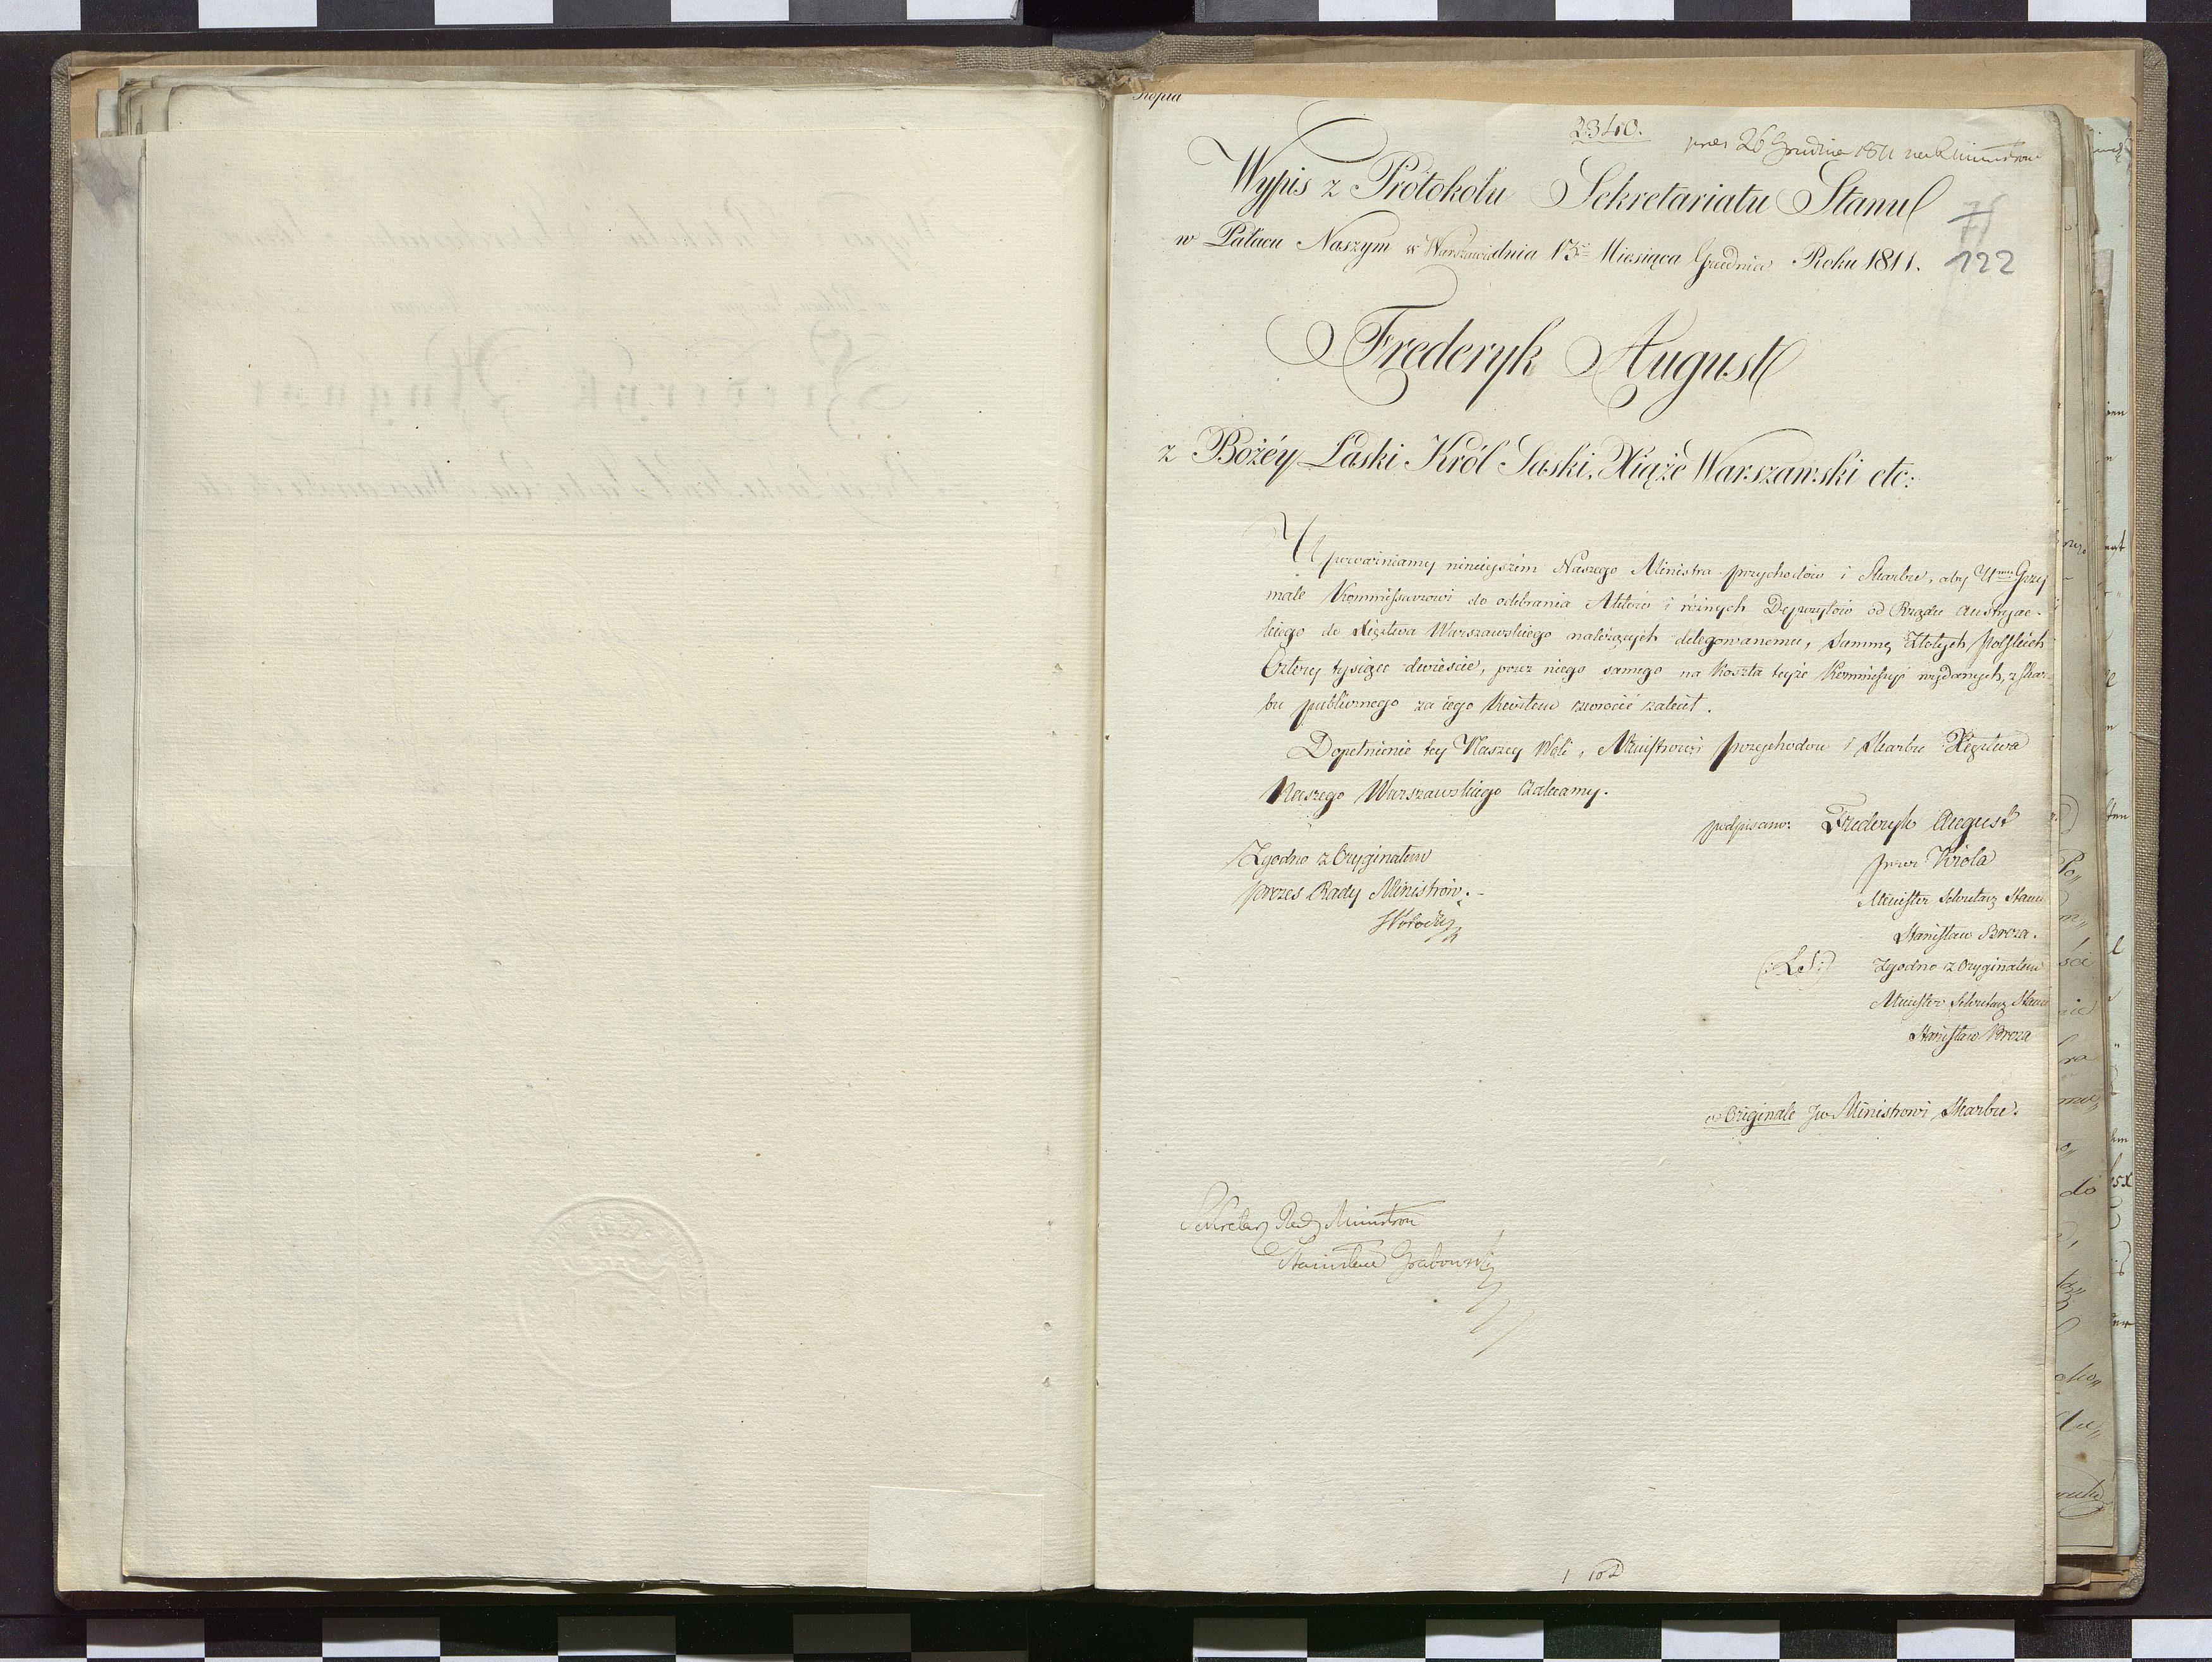 Kopia
2340.
pres 26 Grudnia 1811 na R Ministrow
Wypis z Protokołu Sekretariatu Stanu
71
w Pałacu Naszym w Warszawie dnia 13. Miesiąca Grudnia Roku 1811.
122
Frederyk August
z Bożéy Łaski Król Saski, Xiąże Warszawski etc:
Upoważniamy ninieyszém Naszego Ministra przychodów i Skarbu, aby Ur Grzy
male Kommissarzowi do odebrania Aktów i róznych Depozytów od Rządu Austryac-
kiego do Xięztwa Warszawskiego należących delegowanemu, summę Złotych Polskich
Cztery tysiące dwieście, przez niego samego na koszta teyże Kommissyi wydanych, z skar-
bu publicznego za iego kwitem zwrocić zalecił.
Dopełnienie tey Naszey Woli, Ministrowi przychodow i Skarbu Xięztwa
Naszego Warszawskiego Zalecamy.
podpisano: Frederyk August
Zgodno z Oryginałem
przez Króla
prezes Rady Ministrów.
Minister Sekretarz Stanu
Stanisław Breza.
(:LS:) Zgodno z Oryginałem
Minister Sekretarz Stanu
Stanisław Breza
w Originale Jw Ministrowi Skarbu
Sekretarz Rady Ministrow
Stanisław Grabowski